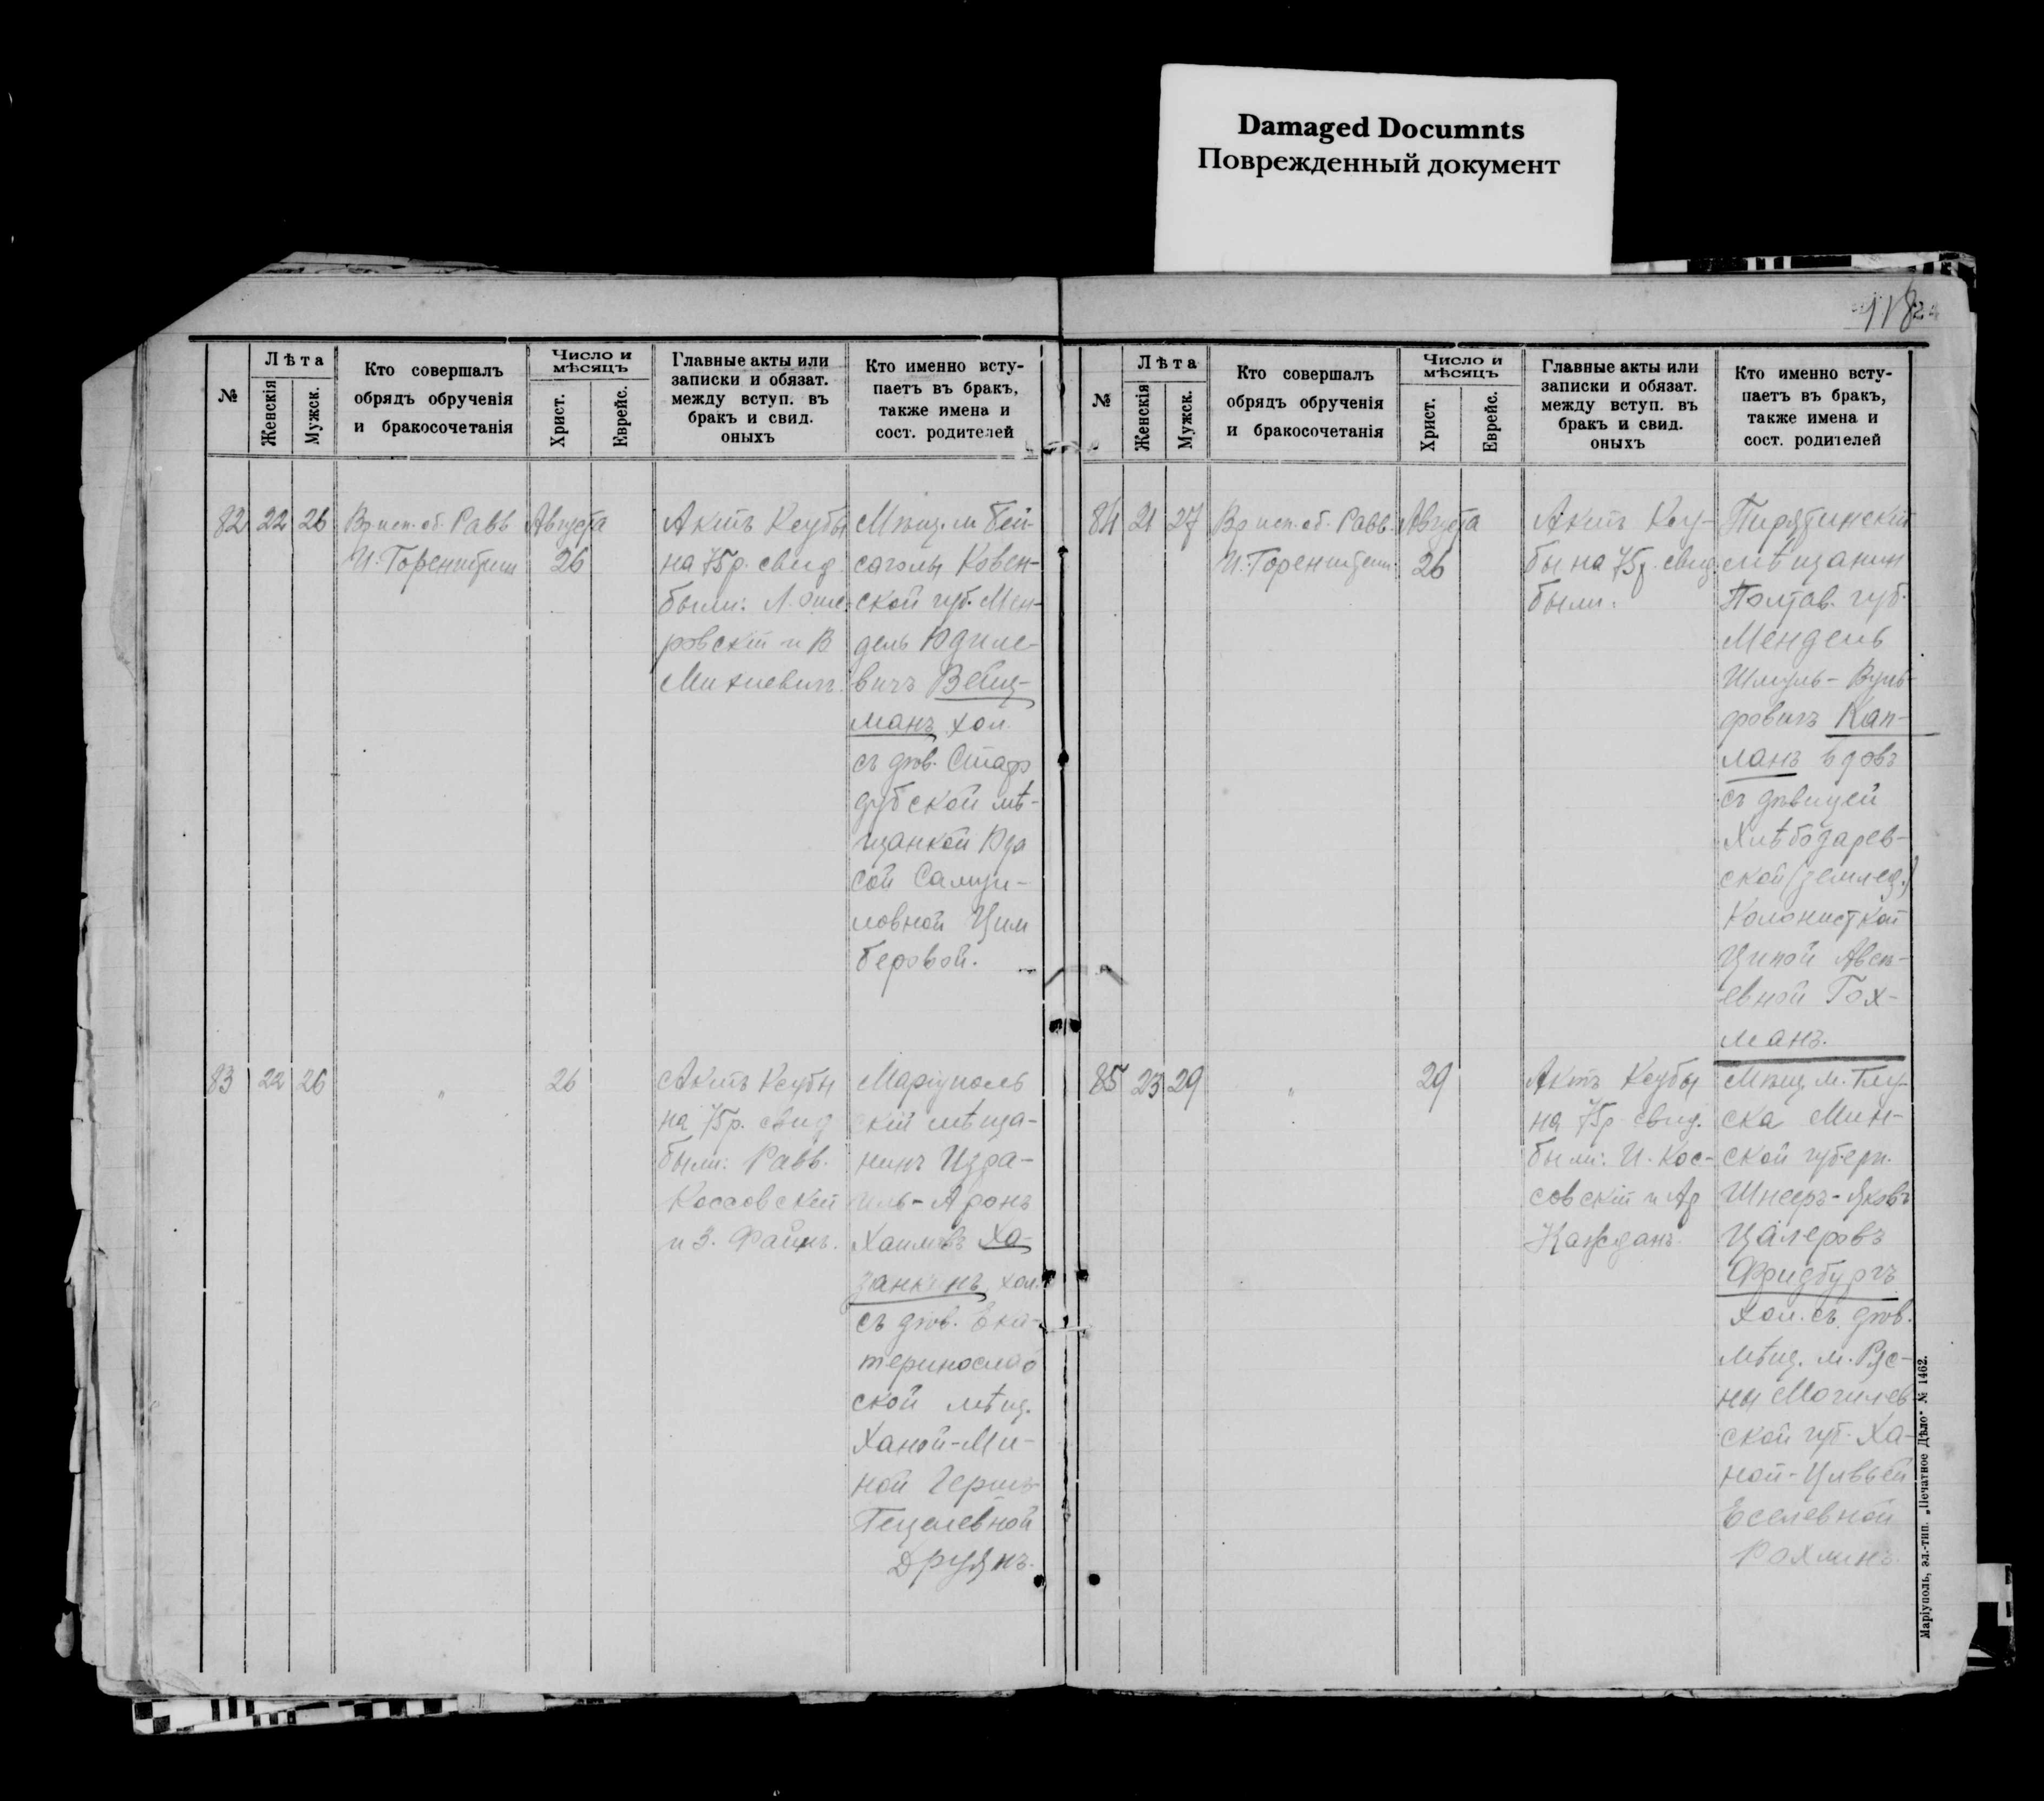 Damaged Documnts
Поврежденный документ
118
№
Лѣта
Женскія
Мужск.
Кто совершалъ
обрядъ обрученія
и бракосочетанія
Число и
мѣсяцъ
Христ.
Еврейс.
Главные акты или
записки и обязат.
между вступ. въ
бракъ и свид.
оныхъ
Кто именно всту-
паетъ въ бракъ,
также имена и
сост. родителей
82
22
26
Вр. исп. об. Равв
И. Горенштейн
Августа
26
Актъ Кеубы
на 75 р. свид
были:
ровскій и В
Михневичъ.
Мѣщ. м. Бей-
саголы Ковен-
ской губ. Мен-
дель Юделе-
вичъ Вейц-
манъ хол.
съ дѣв. Старо
дубской мѣ-
щанкой Юда
сой Самуи-
ловной Цим
беровой.
83
22
26
"
26
Актъ Кеубы
на 75 р. свид
были: Равв.
Коссовскій
и З. Файнъ.
Маріуполь
скій мѣща-
нинъ Изра-
иль-Аронъ
Хаимовъ Ха-
занкинъ хол.
съ дѣв. Ека-
теринослав
ской мѣщ.
Ханой-Ми-
ной Герш-
Гецелевной
Друянъ.
№
Лѣта
Женскія
Мужск.
Кто совершалъ
обрядъ обрученія
и бракосочетанія
Число и
мѣсяцъ
Христ.
Еврейс.
Главные акты или
записки и обязат.
между вступ. въ
бракъ и свид.
оныхъ
Кто именно всту-
паетъ въ бракъ,
также имена и
сост. родителей
84
21
27
Вр исп. об. Равв.
И. Горенштейн
Августа
26
Актъ Кеу-
бы на 75 р. свид.
были:
Пирятинскій
мѣщанин
Полтав. губ.
Мендель
Шмуль-Вуль-
фовичъ Кап-
ланъ вдовъ
съ дѣвицей
Хлѣбодаров-
ской (землед.)
Колонисткой
Ципой
евной Гох-
манъ.
85
23
29
"
29
Актъ Кеубы
на 75 р свид.
были: И. Кос-
совскій и Ар
Кажданъ.
Мѣщ. м. Глу-
ска Мин-
ской губерн.
Шнееръ-Яковъ
Цалеровъ
Фридбургъ
хол. съ дѣв.
мѣщ. м.Ряс-
ны Могилев
ской губ. Ха-
ной-Цивьей
Еселевной
Рохлинъ.
Маріуполь, эл.-тип. „Печатное Дѣло" № 1462.